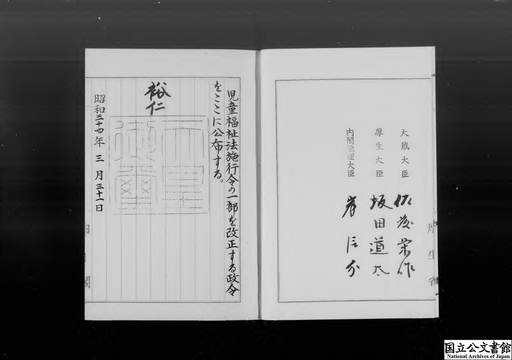 大蔵大臣 佐藤栄作
厚生大臣 坂田道太
内閣総理大臣 岸信介
児童福祉法施行令の一部を改正する政令
をここに公布する。
裕仁
天皇御璽
昭和三十四年三月三十一日
内閣
国立公文書館
National Archives of Japan